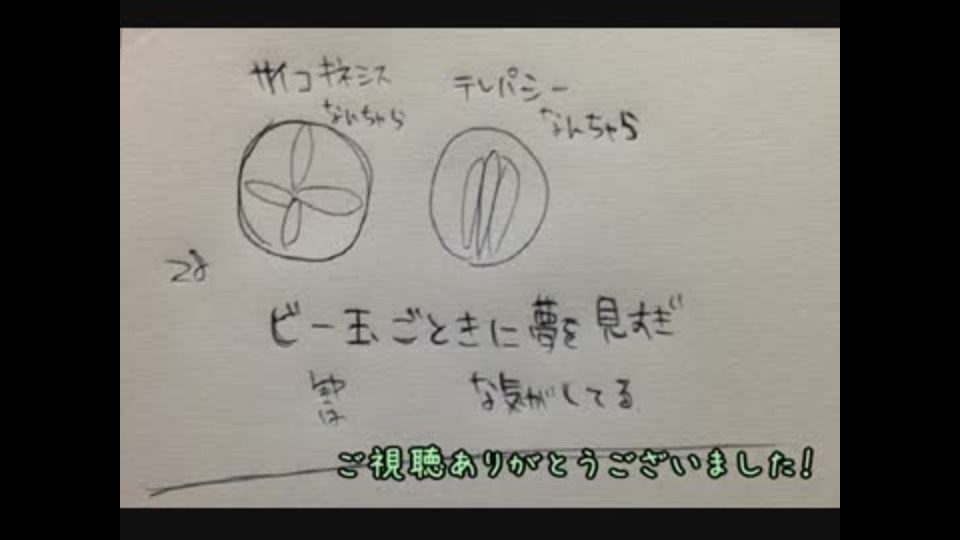 サイコキネシス
なんちゃら
テレパシー
なんちゃら
ビー玉ごときに夢を見すぎ
な気がしてる
ご視聴ありがとうございました!